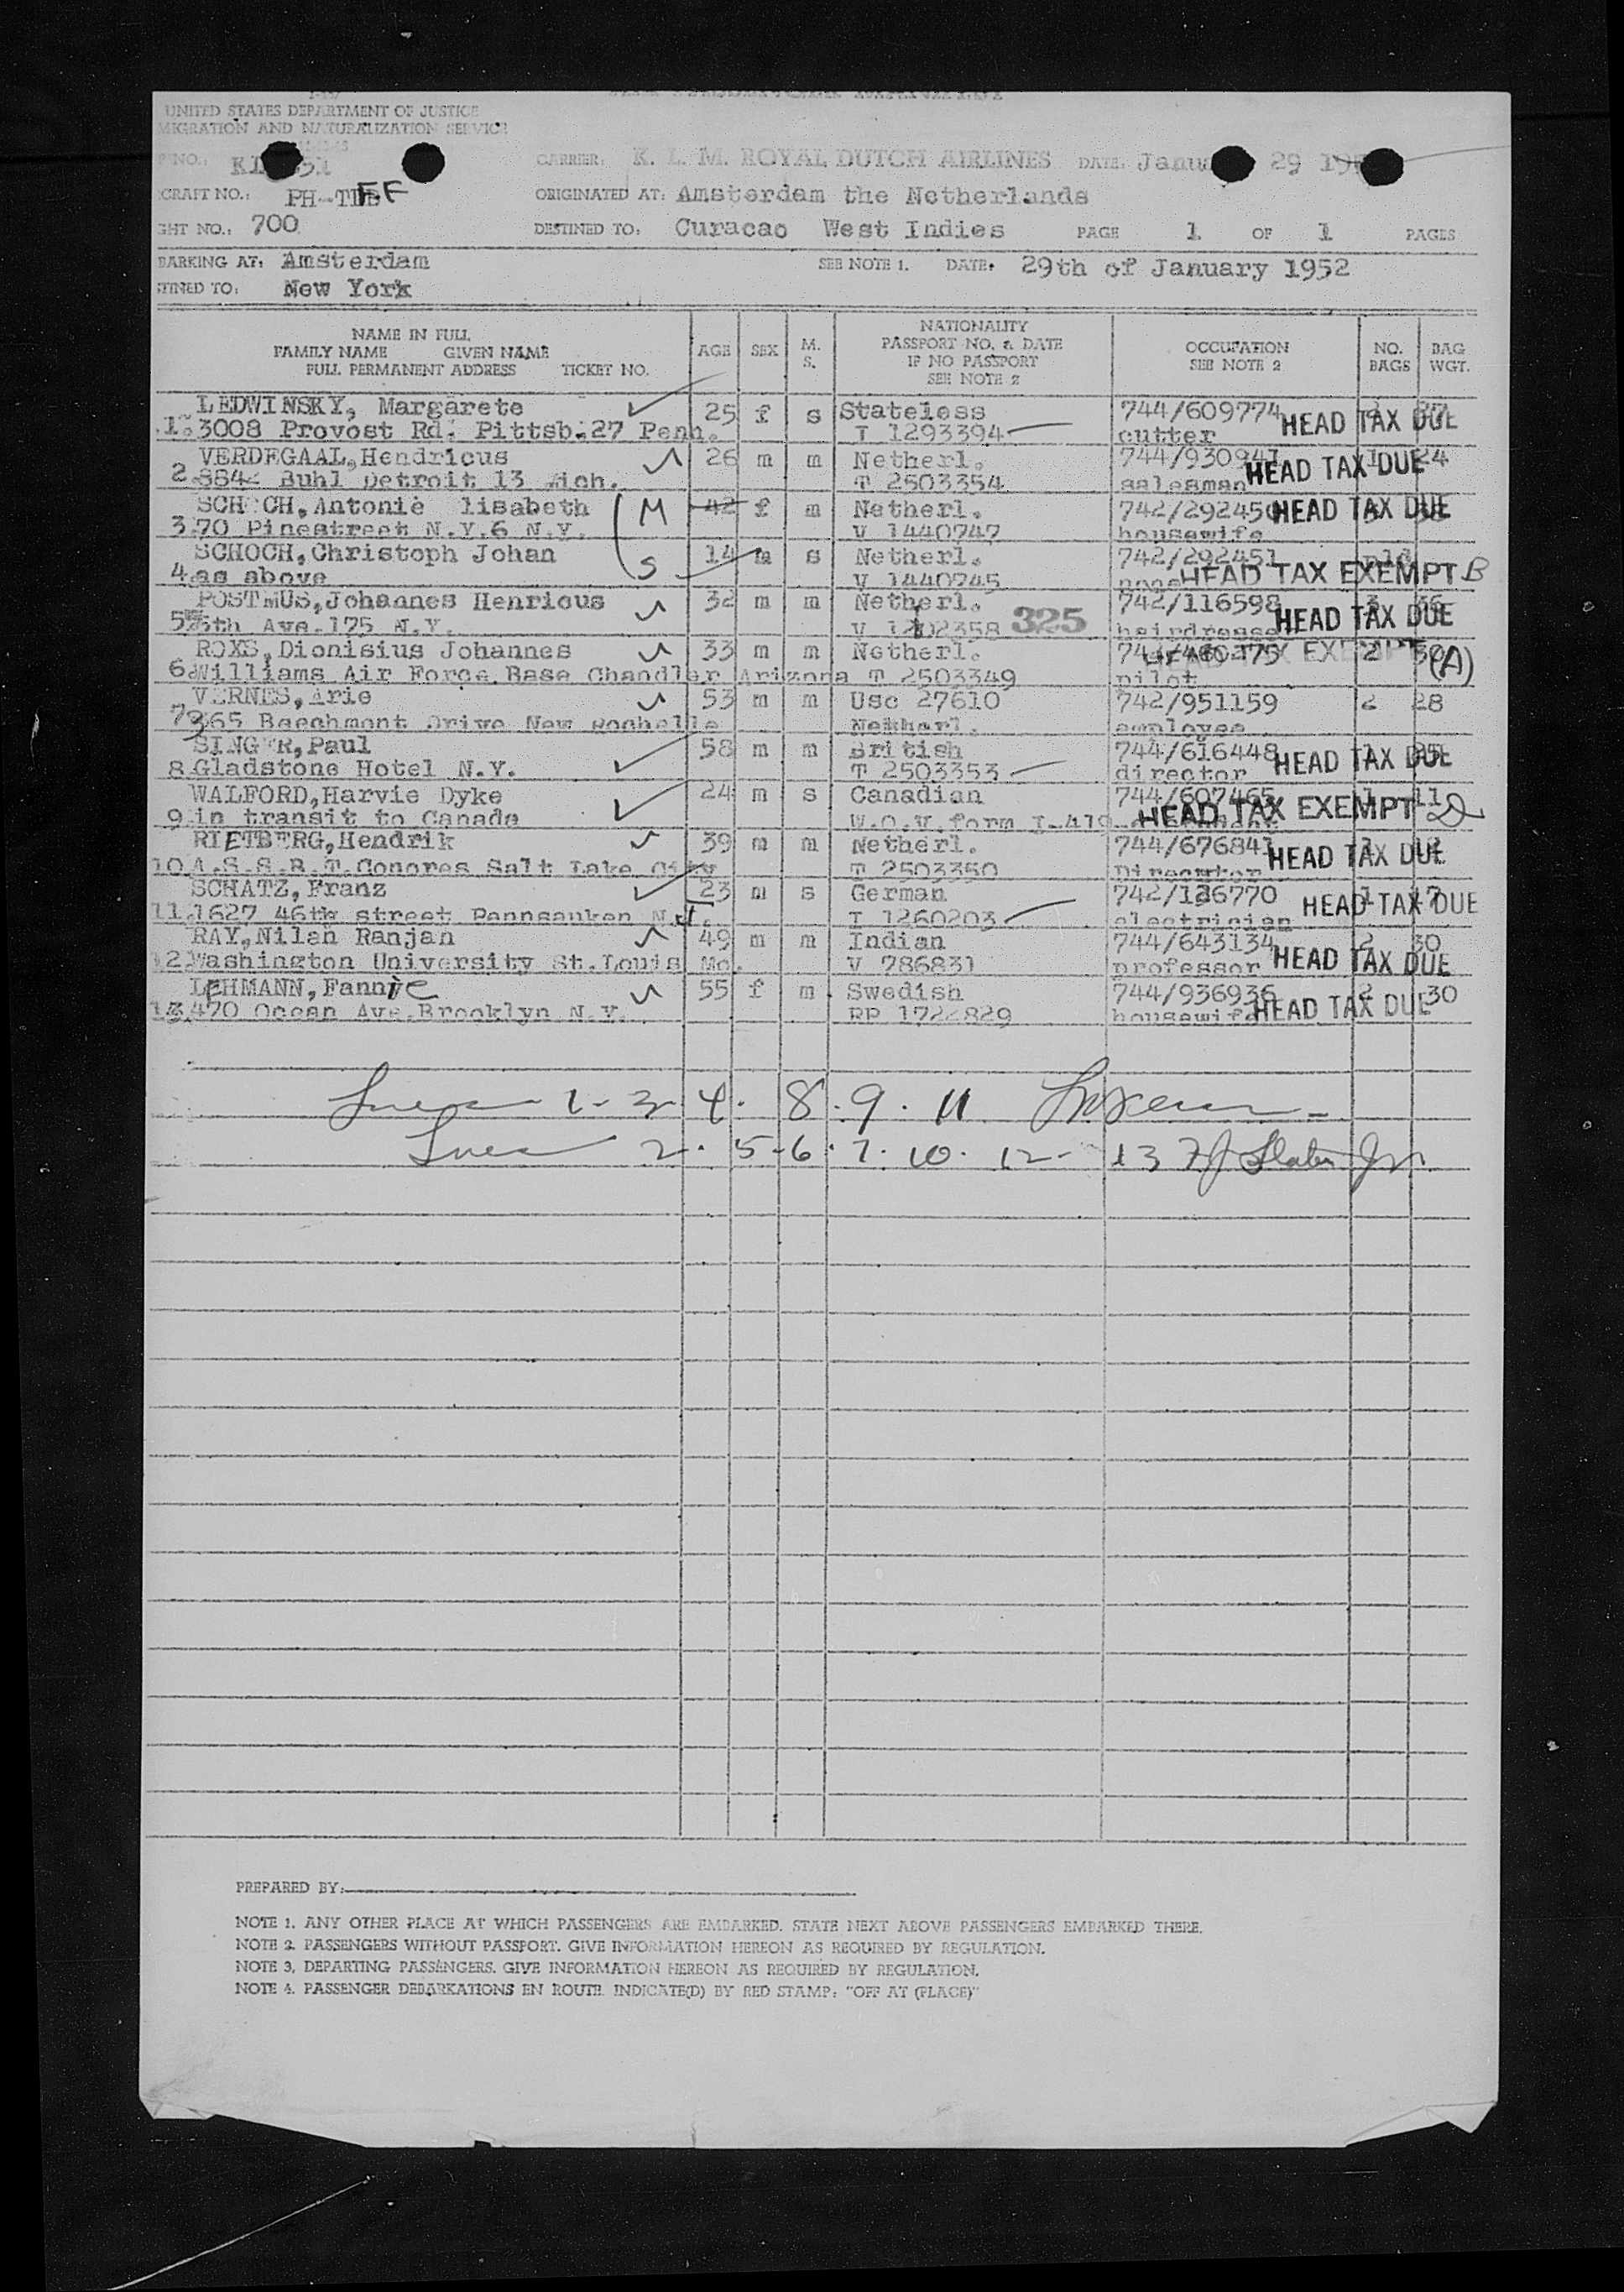 UNITED STATES DEPARTMENT OF JUSTICE
MIGRATION AND NATURALIZATION SERVICE
NO.: CARRIER: K. L. M. ROYAL DUTCH AIRLINES DATE: 29
CRAFT NO.: ORIGINATED AT: Amsterdam the Netherlands
GHT NO.: 700 DESTINED TO: Curacao West Indies PAGE 1 OF 1 PAGES
BARKING AT: Amsterdam SEE NOTE 1. DATE: 29th of January 1952
TINED TO: New York
NAME IN FULL
FAMILY NAME GIVEN NAME
FULL PERMANENT ADDRESS TICKET NO.
AGE SEX M. S.
NATIONALITY
PASSPORT NO. & DATE
IF NO PASSPORT
SEE NOTE 2
OCCUPATION
SEE NOTE 2
NO. BAGS
BAG WGT.
LEDWINSKY, Margarete 25 f s Stateless 744/609774 HEAD TAX DUE
1.3008 Provost Rd. Pittsb.27 Penn. I 1293394 cutter
VERDEGAAL,Hendricus 26 m m Netherl. 24
2 Buhl Detroit 13 Mich. T 2503354 salesman HEAD TAX DUE
SCH CH,Antonie lisabeth M 42 f m Netherl. HEAD TAX DUE
3.70 Pinestreet N.Y.6 N.Y. V 1440747 housewife
SCHOCH,Christoph Johan 14 m s Netherl. 742/292451
4.as above S V 1440745 none HEAD TAX EXEMPT B
POSTMUS,Johannes Henricus 32 m m Netherl. 742/116598 HEAD TAX DUE
5 5th Ave.175 N.Y. 325
ROXS,Dionisius Johannes 33 m m Netherl. HEAD TAX EXEMPT (A)
6.Williams Air Force Base Chandler Arizona T 2503349 pilot
VERNES,Arie 53 m m Usc 27610 742/951159 2 28
7 365 Beechmont Drive New Rochelle Netherl. employee
SINGER,Paul 58 m m British 744/616448 HEAD TAX DUE
8.Gladstone Hotel N.Y. T 2503353 director
WALFORD,Harvie Dyke 24 m s Canadian 744/607465 1 11
9.in transit to Canada W.O.V.form I-419 HEAD TAX EXEMPT
RIETBERG,Hendrik 39 m m Netherl. 744/676841 HEAD TAX DUE
10.A.S.S.B.T.Congres Salt Lake City T 2503350 Director
SCHATZ,Franz 23 m s German 742/126770 1 17 HEAD TAX DUE
11.1627 46th street Pennsauken N.J. I 1260203 electrician
RAY,Nilan Ranjan 49 m m Indian 744/643134 2 30
12 Washington University St.Louis Mo. V 786831 professor HEAD TAX DUE
LEHMANN,Fannie 55 f m Swedish 744/936936 2 30
13.470 Ocean Ave.Brooklyn N.Y. housewife HEAD TAX DUE
1-3 4. 8.9.11
2.5-6.7.10.12-13
PREPARED BY:
NOTE 1. ANY OTHER PLACE AT WHICH PASSENGERS ARE EMBARKED. STATE NEXT ABOVE PASSENGERS EMBARKED THERE.
NOTE 2. PASSENGERS WITHOUT PASSPORT. GIVE INFORMATION HEREON AS REQUIRED BY REGULATION.
NOTE 3. DEPARTING PASSENGERS. GIVE INFORMATION HEREON AS REQUIRED BY REGULATION.
NOTE 4. PASSENGER DEBARKATIONS EN ROUTE INDICATE(D) BY RED STAMP: "OFF AT (PLACE)"